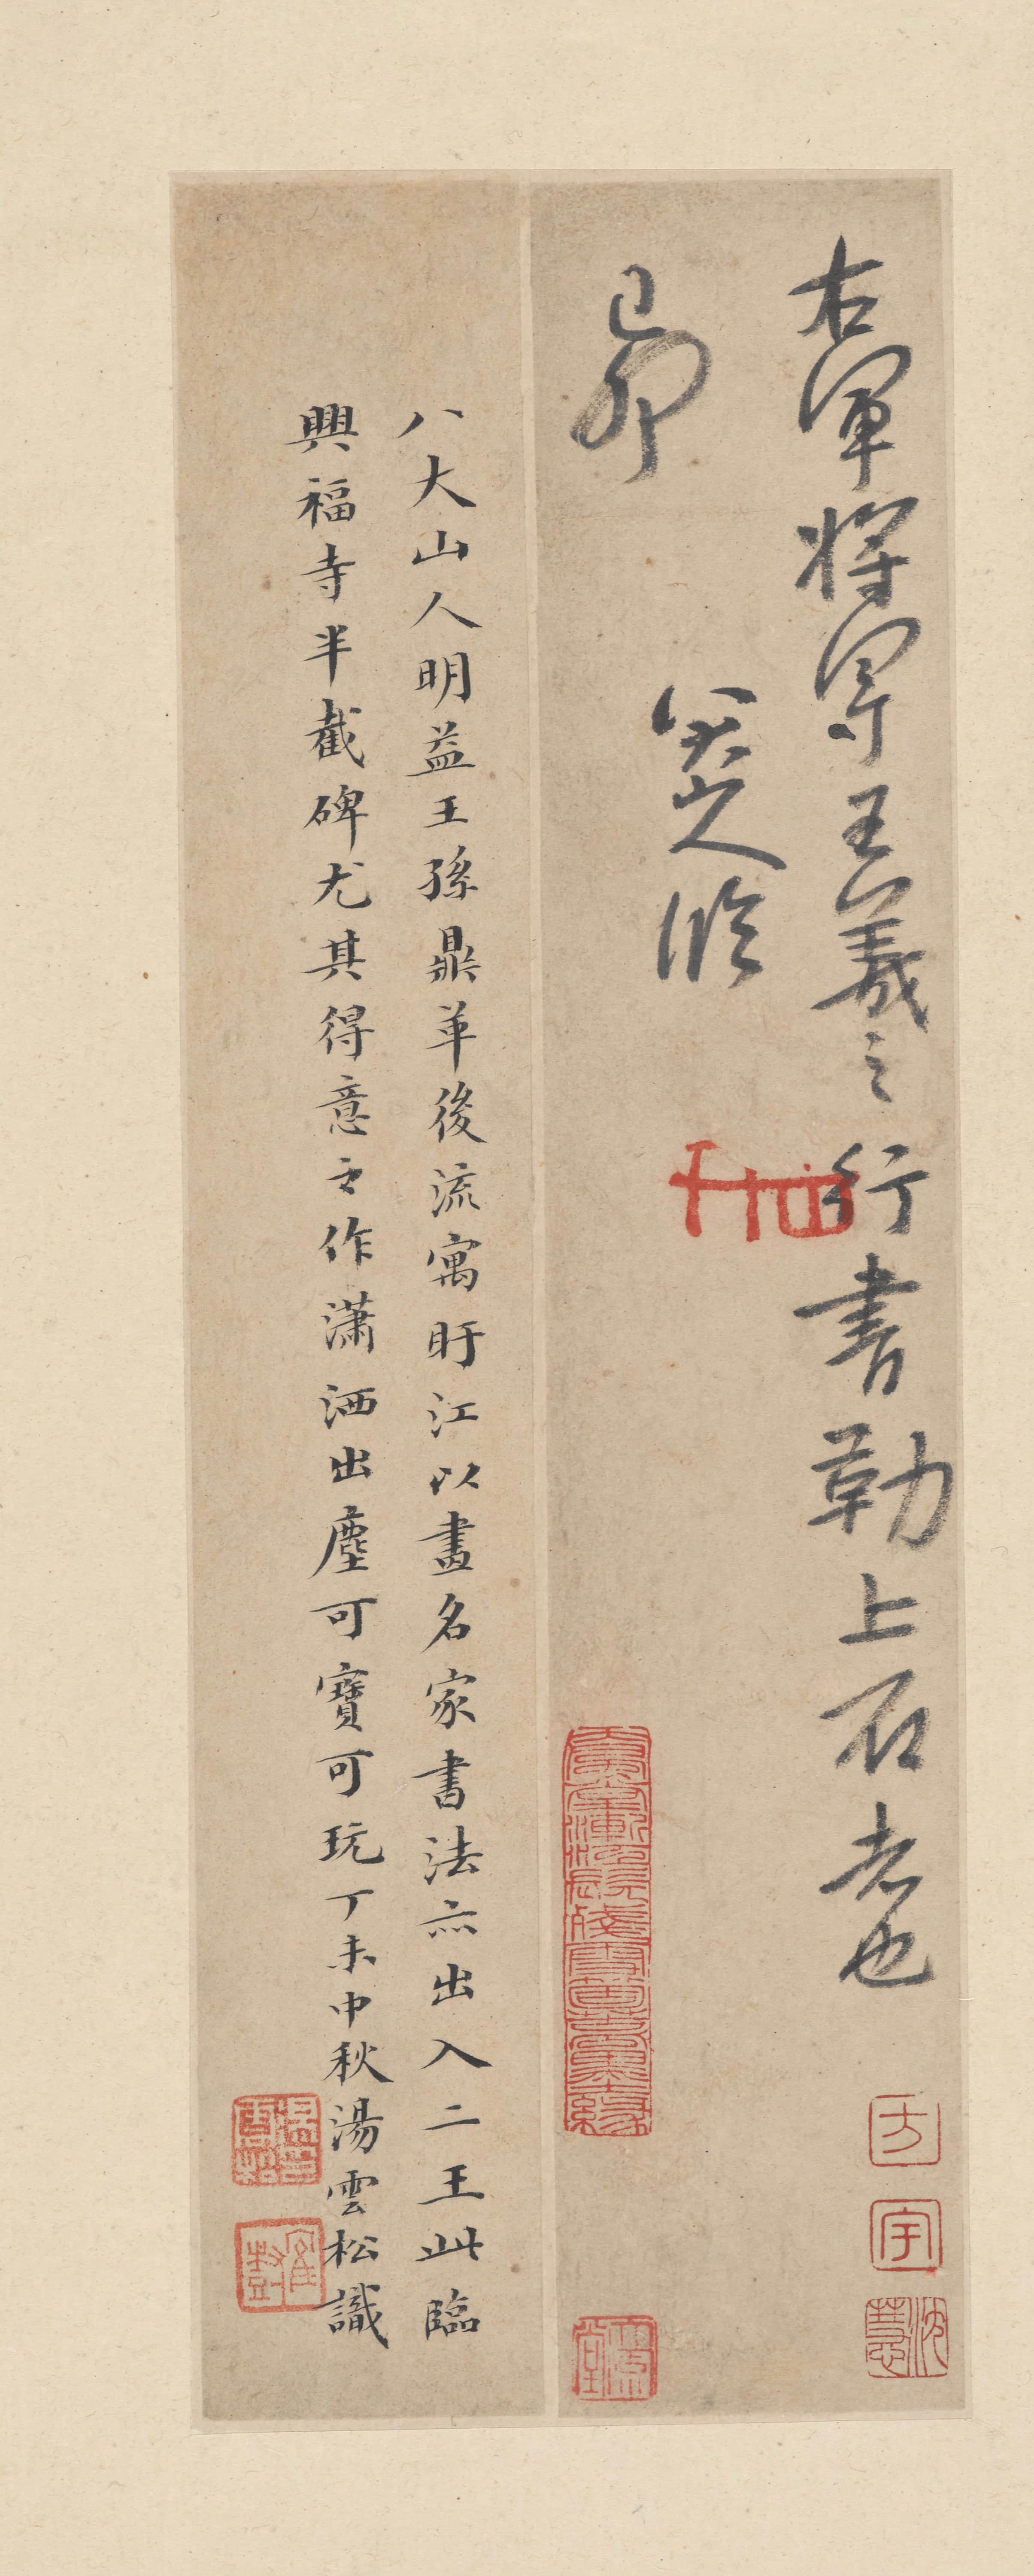 右軍將軍王羲之行書勒上石者也
己卯
八大山人臨
八大山人明益王孫鼎革後流寓盱江以畫名家書法亦出入二王此臨
興福寺半截碑尤其得意之作瀟洒出塵可寶可玩丁未中秋湯雲松識
方
宇